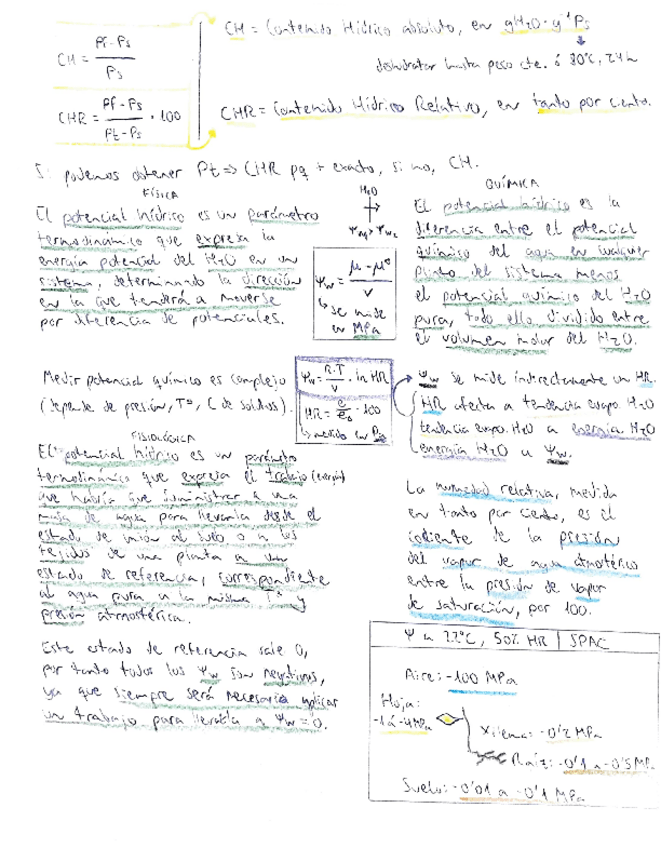 CH = (Pf - Ps) / Ps
CHR = (Pf - Ps) / (Pt - Ps) · 100
CH = Contenido Hídrico absoluto, en gH2O · g⁻¹ Ps
deshidratar hasta peso cte. ó 80°C, 24h
CHR = Contenido Hídrico Relativo, en tanto por ciento.
Si podemos obtener Pt => CHR pq + exacto, si no, CH.
FÍSICA
El potencial hídrico es un parámetro
termodinámico que expresa la
energía potencial del H2O en un
sistema, determinando la dirección
en la que tenderá a moverse
por diferencia de potenciales.
H2O
Ψw1 > Ψw2
Ψw = (μ - μ°) / V
↳ se mide
en MPa
QUÍMICA
El potencial hídrico es la
diferencia entre el potencial
químico del agua en cualquier
punto del sistema menos
el potencial químico del H2O
pura, todo ello dividido entre
el volumen molar del H2O.
Medir potencial químico es complejo
(depende de presión, Tª, C de solutos).
Ψw = (R·T / V) · ln HR
HR = (e / e0) · 100
↳ medido en Pa
Ψw se mide indirectamente un HR.
HR afecta a tendencia evapo. H2O
tendencia evapo. H2O a energía H2O
energía H2O a Ψw.
FISIOLÓGICA
El potencial hídrico es un parámetro
termodinámico que expresa el trabajo (energía)
que habría que suministrar a una
masa de agua para llevarla desde el
estado de unión al suelo o a los
tejidos de una planta a un
estado de referencia, correspondiente
al agua pura a la misma Tª y
presión atmosférica.
La humedad relativa, medida
en tanto por ciento, es el
cociente de la presión
del vapor de agua atmosférico
entre la presión de vapor
de saturación, por 100.
Este estado de referencia vale 0,
por tanto todos los Ψw son negativos,
ya que siempre será necesario aplicar
un trabajo para llevarla a Ψw = 0.
Ψ a 22°C, 50% HR | SPAC
Aire: -100 MPa
Hoja:
-1 a -4 MPa
Xilema: -0'2 MPa
Raíz: -0'1 a -0'5 MPa
Suelo: -0'01 a -0'1 MPa